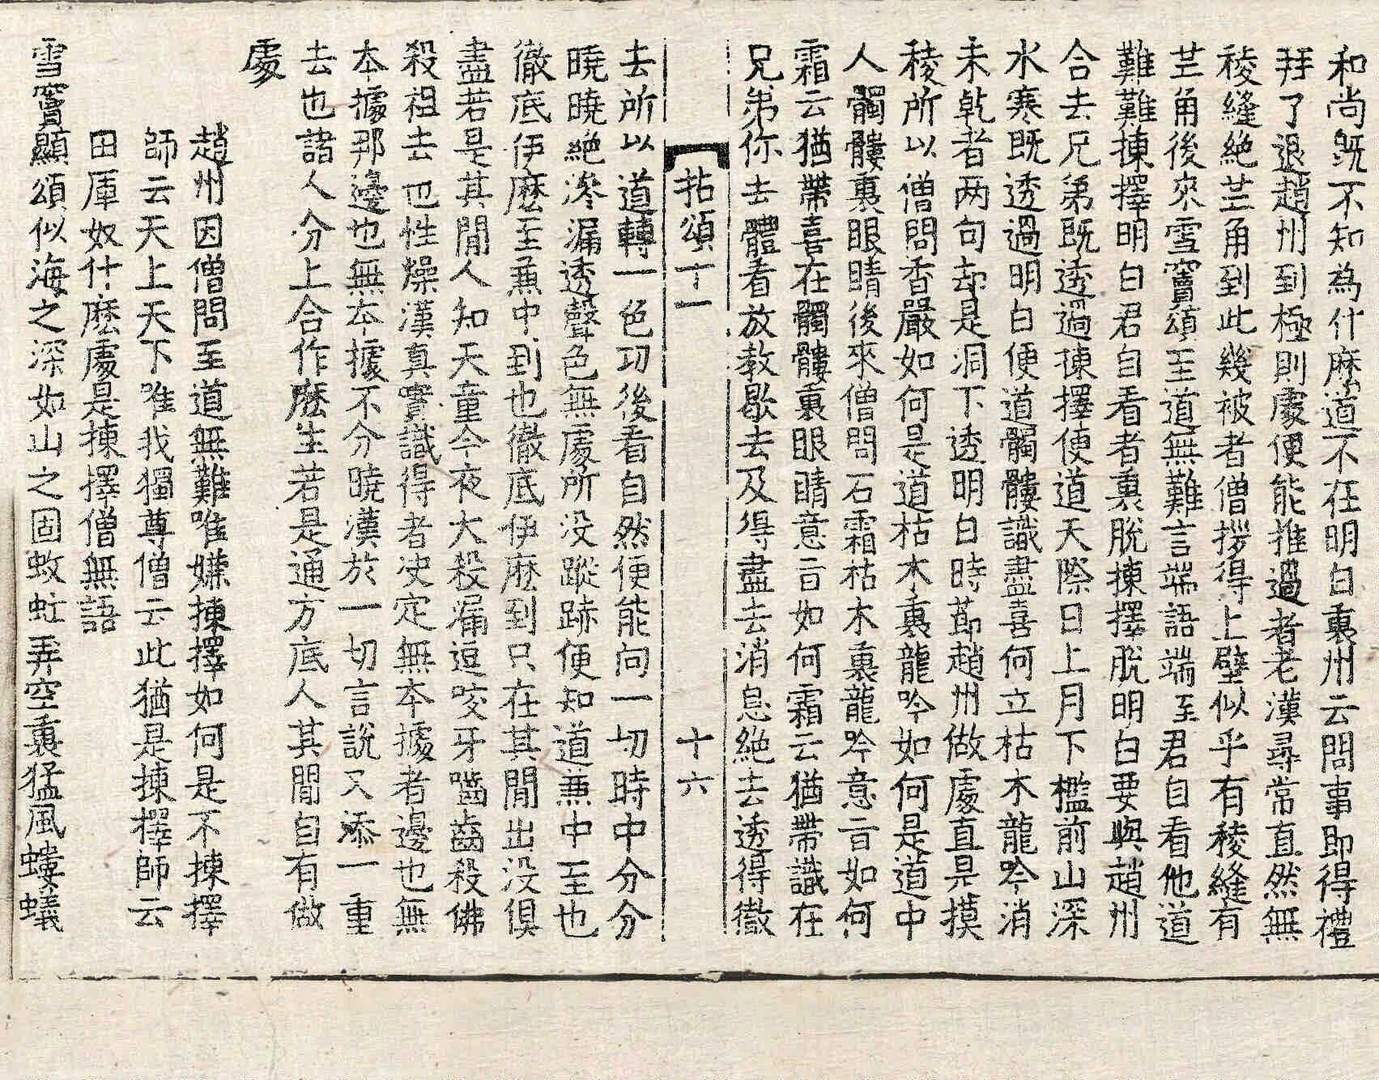 和尚既不知為什麽道不在明白裏州云問事即得禮
拜了退趙州到極則處便能推過者老漢尋常直然無
稜縫絶芒角到此幾被者僧拶得上壁似乎有稜縫有
芒角後來雪竇頌至道無難言端語端至君自看他道
難難揀擇明白君自看者裏脫揀擇脫明白要與趙州
合去兄弟既透過揀擇便道天際日上月下檻前山深
水寒既透過明白便道髑髏識盡喜何立枯木龍吟消
未乾者两句却是洞下透明白時節趙州做處直是摸
稜所以僧問香嚴如何是道枯木裏龍吟如何是道中
人髑髏裏眼睛後來僧問石霜枯木裏龍吟意旨如何
霜云猶帶喜在髑髏裏眼睛意旨如何霜云猶帶識在
兄弟你去體看放教歇去及得盡去消息絶去透得徹
拈頌下一 十六
去所以道轉一色功後看自然便能向一切時中分分
曉曉絶滲漏透聲色無處所没蹤跡便知道兼中至也
徹底伊麽至兼中到也徹底伊麽到只在其間出没俱
盡若是其間人知天童今夜大殺漏逗咬牙嚙齒殺佛
殺祖去也性燥漢真實識得者决定無本據者邊也無
本據那邊也無本據不分曉漢於一切言說又添一重
去也諸人分上合作麽生若是通方底人其間自有做
處
趙州因僧問至道無難唯嫌揀擇如何是不揀擇
師云天上天下唯我獨尊僧云此猶是揀擇師云
田厙奴什麽處是揀擇僧無語
雪竇顯頌似海之深如山之固蚊虻弄空裏猛風螻蟻